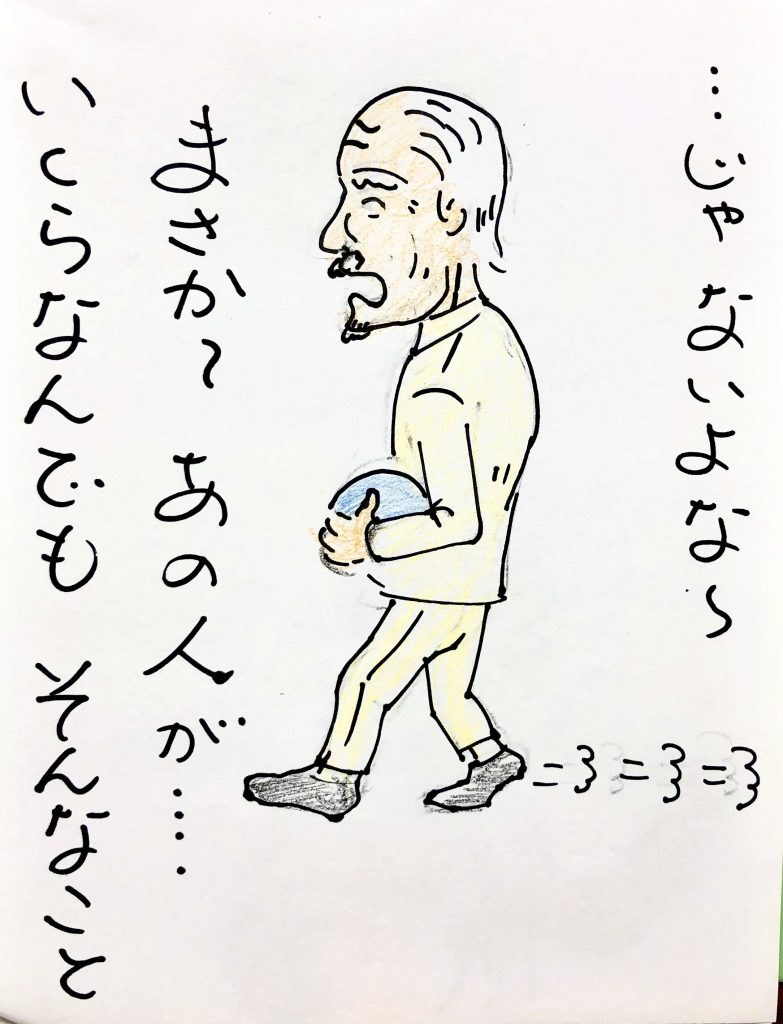 …じゃ ないよな〜
まさか〜 あの人が……
いくらなんでも そんなこと